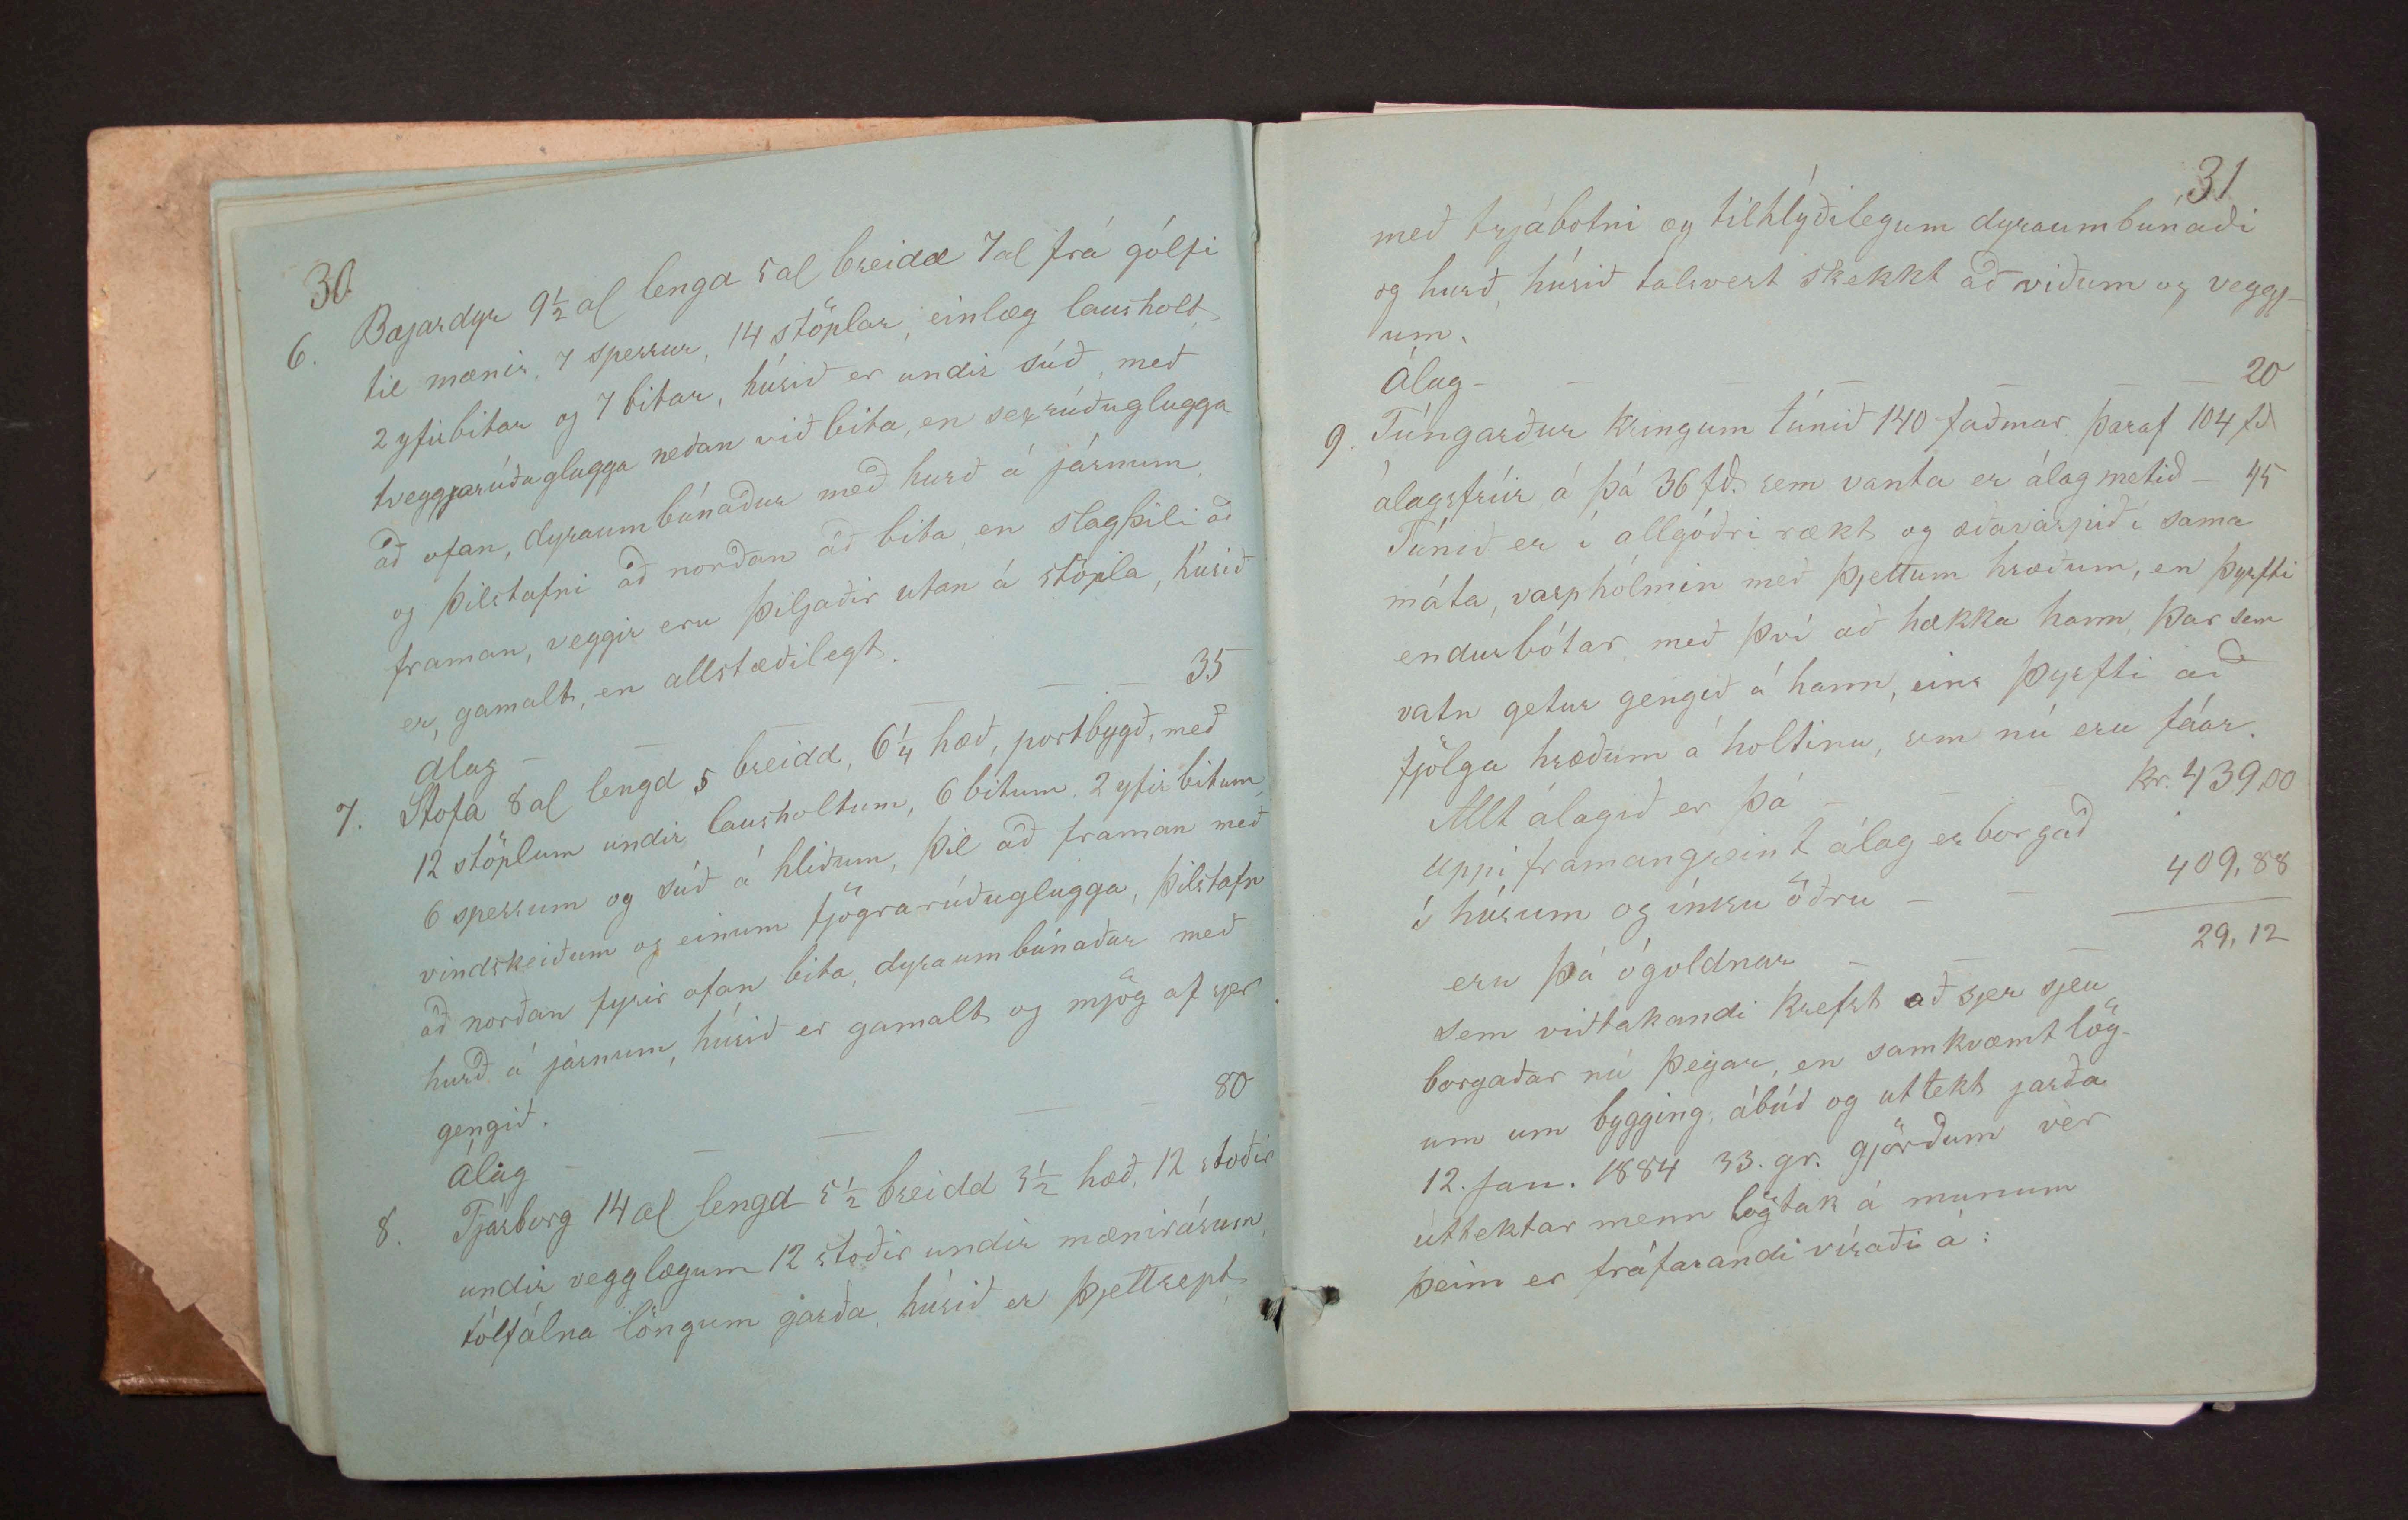 30.
6. Bæjardyr 9½ al lengd 5 al breidd 7 al frá gólfi
til mænis, 7 sperrur, 14 stöplar, einlæg lausholt,
2 yfirbitar og 7 bitar, húsið er undir súð, með
tveggjarúðuglugga neðan við bita, en sexrúðuglugga
að ofan, dyraumbúnaður með hurð á járnum,
og þilstafni að norðan að bita, en slagþili að
framan, veggir eru þiljaðir utan á stöpla, húsið
er, gamalt, en allstæðilegt.
Álag – – – – – 35
7. Stofa 8 al lengd 5 breidd, 6¼ hæð, portbygð, með
12 stöplum undir lausholtum, 6 bitum, 2 yfirbitum,
6 sperrum og súð á hliðum, þil að framan með
vindskeiðum og einum fjögrarúðuglugga, þilstafn
að norðan fyrir ofan bita, dyraumbúnaður með
hurð á járnum, húsið er gamalt og mjög af sjer
gengið.
Álag – – – – – 80
8. Fjárborg 14 al lengd 5½ breidd 3½ hæð, 12 stoðir
undir vegglægum 12 stoðir undir mænirásum,
tólfálna löngum garða, húsið er þjettrept,
31
með trjábotni og tilhlýðilegum dyraumbúnaði
og hurð, húsið talsvert skekkt að viðum og veggj-
um.
Álag – – – – – – 20
9. Túngarður kringum túnið 140 faðmar þaraf 104 fð
álagsfríir á þá 36 fð. sem vanta er álag metið – 45
Túnið er í allgóðri rækt og æðarvarpið í sama
máta, varphólmin með þjettum hræðum, en þyrfti
endurbótar, með því að hækka hann, þar sem
vatn getur gengið á hann, eins þyrfti að
fjölga hræðum á holtinu, sem nú eru fáar.
Allt álagið er þá – – – kr. 439,00
Uppí framangreint álag er borgað
í húsum og ínnsu öðru – – 409,88
eru þá ógoldnar – – – 29,12
sem viðtakandi krefst að sjer sjeu
borgaðar nú þegar, en samkvæmt lög-
um um bygging, ábúð og úttekt jarða
12. Jan. 1884 33. gr. gjörðum vèr
úttektar menn lögtak á munum
þeim er fráfarandi vísaði á: